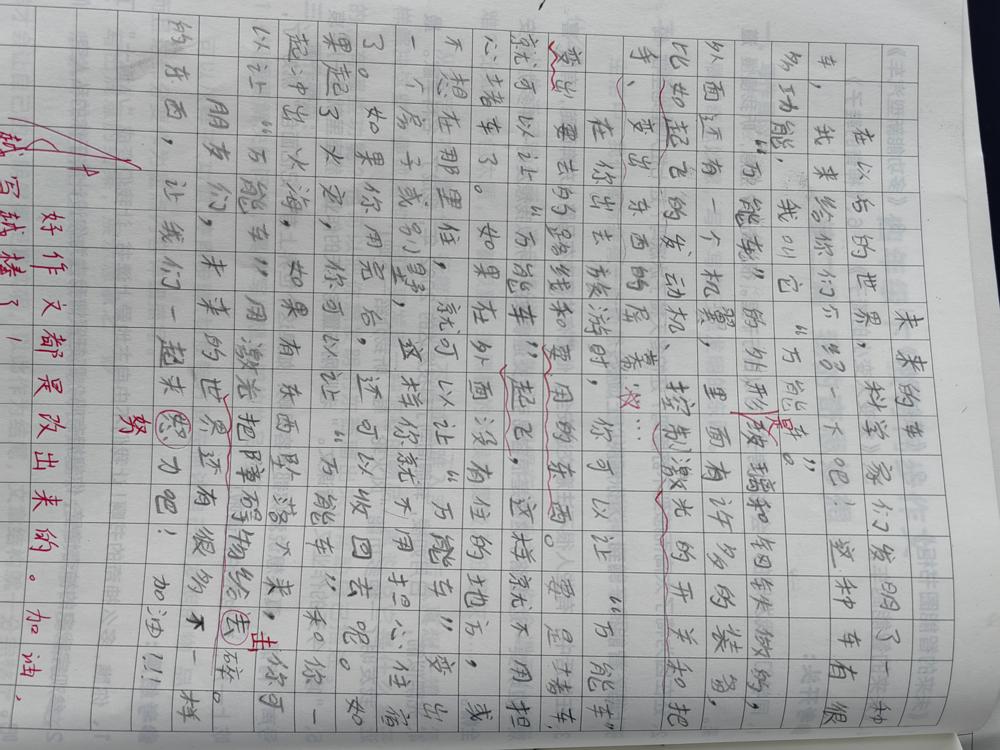 未来的车
在以后的世界，科学家们发明了一种
车，我来给你们介绍一下吧！这种车有很
多功能，我叫它“万能车”。
是
“万能车”的外形玻璃和钢铁做的，
外面还有一个机翼，里面有许多的装备，
比如起飞的发动机、控制激光的开关和把
手、变出东西的屏幕……
在你出去旅游时，你可以让“万能车”
变出要去的路线和要用的东西。要是堵车，
就可以让“万能车”起飞，这样就不用担
心堵车了。如果在外面没有住的地方，或
不想在那里住，就可以让“万能车”变出
一个房子或别墅，这样你就不用担心住宿
了。如果你用完后，还可以收回去呢。如
果起了火灾，你可以让“万能车”和你一
起冲出火海，如果有东西坠落下来，你可
击
以让“万能车”用激光把障碍物给去碎。
朋友们，未来的世界还有很多不一样
的东西，让我们一起来怒力吧！加油!!!
努
好作文都是改出来的。加油，
越写越棒了！